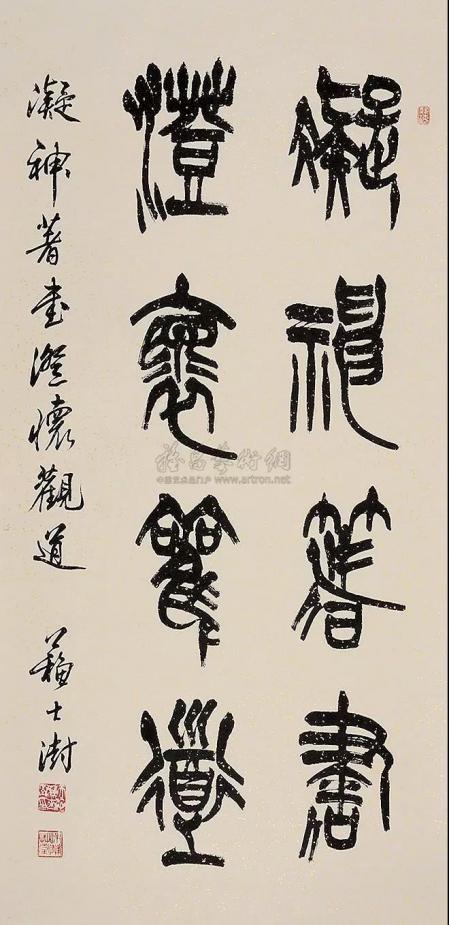 凝神著書
澄懷觀道
凝神著書澄懷觀道 蘇士澍
雅昌藝術網
中国艺术品门户 www.artron.net